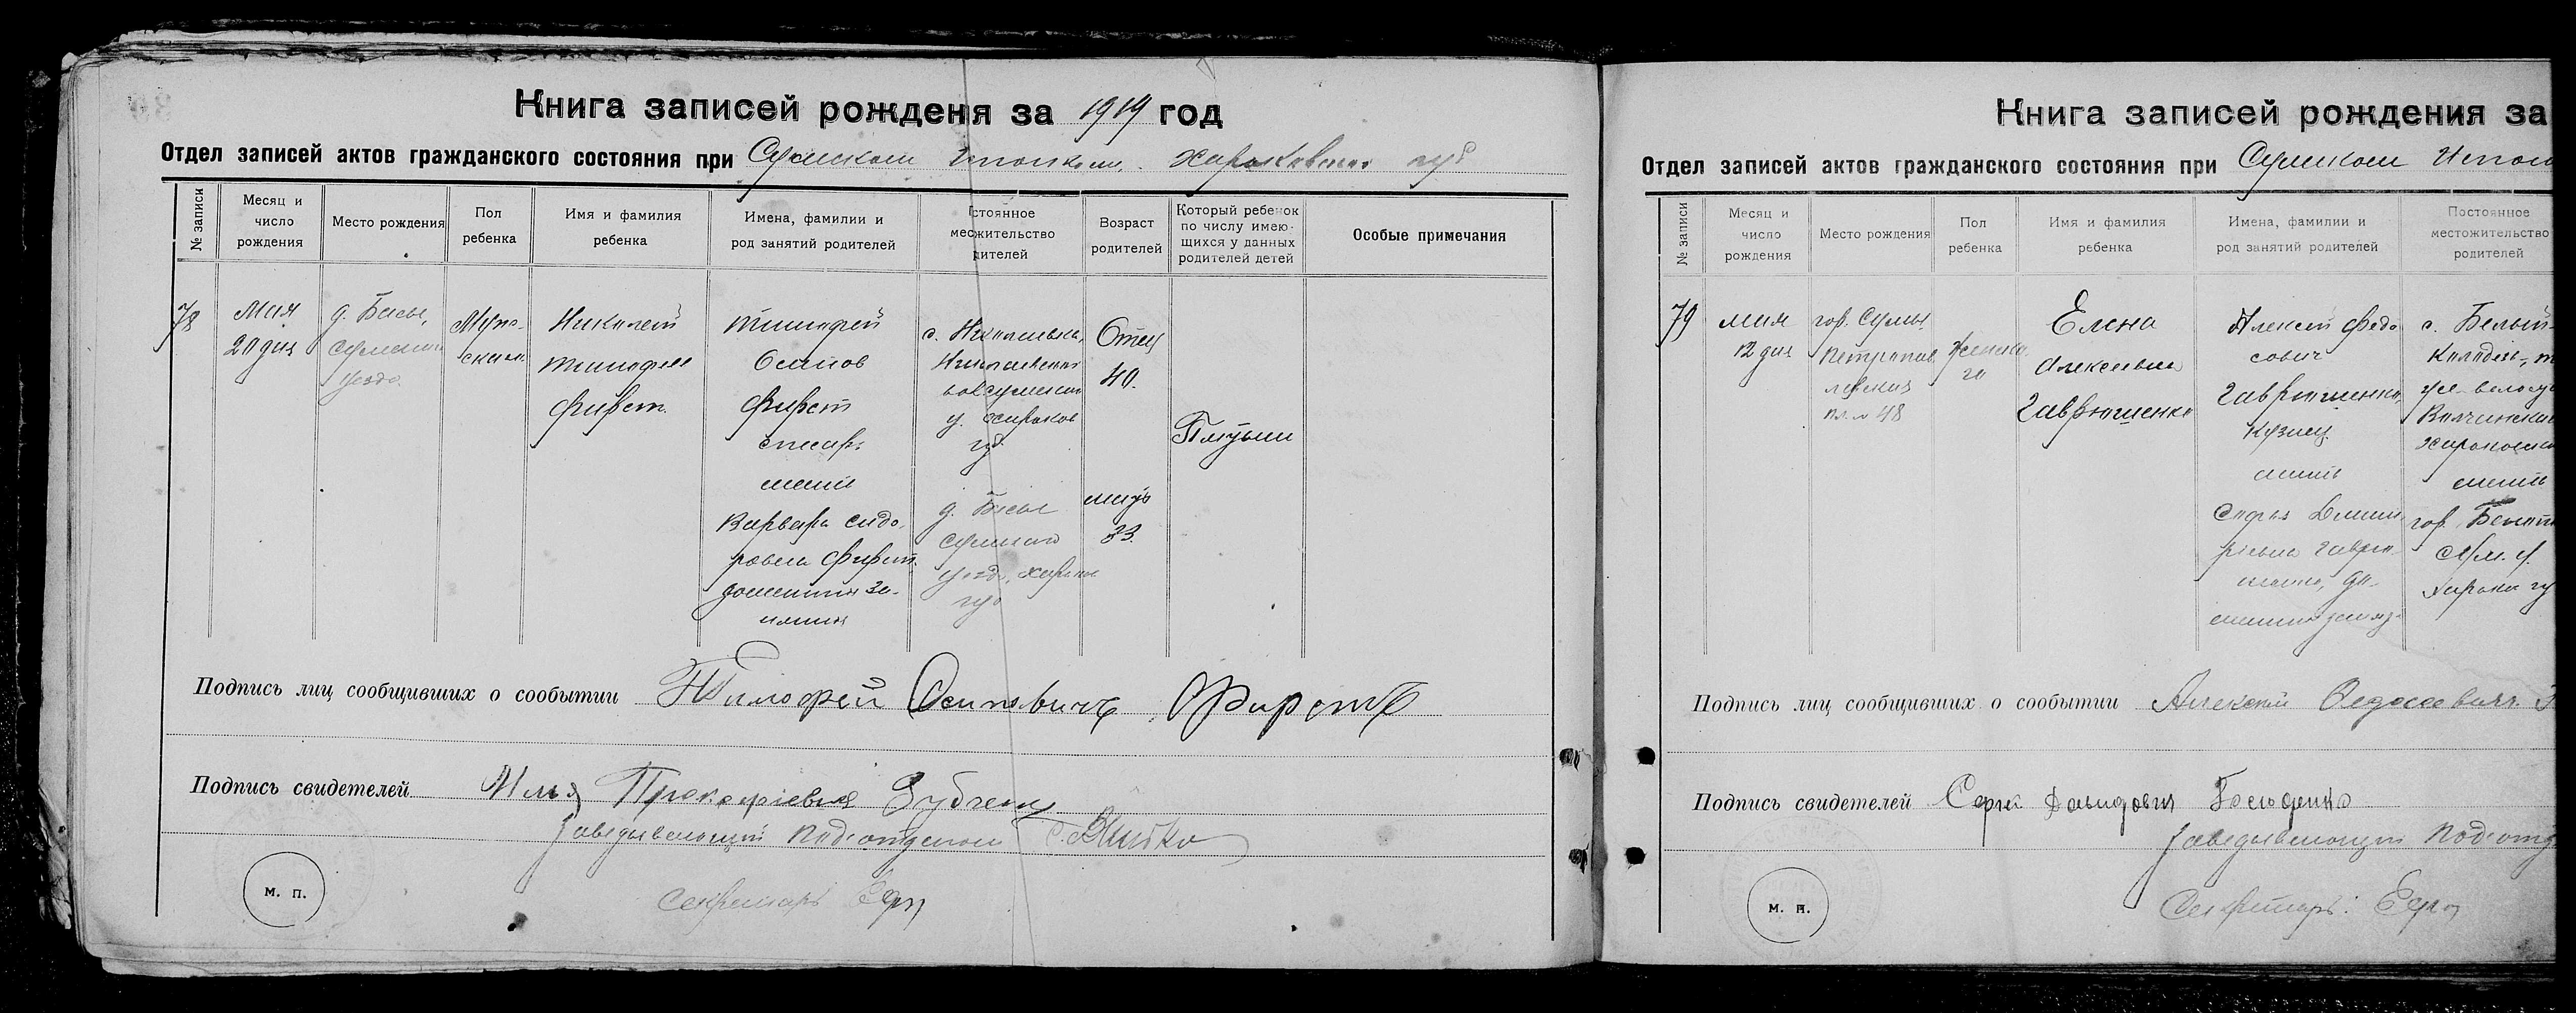 Книга записей рожденя за 1919 год
Отдел записей актов гражданского состояния при Сумском Исполком. Харьковской губ
№ записи
Месяц и
число
рождения
Место рождения
Пол
ребенка
Имя и фамилия
ребенка
Имена, фамилии и
род занятий родителей
стоянное
местожительство
дителей
Возраст
родителей
Который ребенок
по числу имею-
щихся у данных
родителей детей
Особые примечания
78
Мая
20 дня
д. Басы,
Сумского
уезда.
Муж-
ского
Николай
Тимофеев
Фирст.
Тимофей
Осипов
Фирст
слесарь
мать
Варвара Сидо-
ровна Фирст.
домашния за-
нятия
с. Николаевка,
у. Харьков
губ.
д. Басы
Сумского
уезда, Харьков
губ
Отец
40.
мать
33.
Подпись лиц сообщивших о сообытии Тимофей Осиповичъ Фирстъ
Подпись свидетелей Илья Прокофіевич Зубченко
Заведывающий Подотделом
м. п.
Секретарь
Книга записей рождения за
Отдел записей актов гражданского состояния при Сумском Испол
№ записи
Месяц и
число
рождения
Место рождения
Пол
ребенка
Имя и фамилия
ребенка
Имена, фамилии и
род занятий родителей
Постоянное
местожительство
родителей
79
мая
12 дня
гор. Сумы
Петропав
ловская
пл. № 48
Женско
го
Елена
Алексеевна
Гаврюшенко
Алексей Федо
сович
Гаврюшенко,
Кузнец.
мать
София Дмит
ріевна Гаврю-
шенко, до-
с. Белый-
Колодезь,
Волчанскаго
Харьковской
мать
гор.
Харьков гу
Подпись лиц сообщивших о сообытии Алексей Федосеевич
Подпись свидетелей Сергей Давидович
Заведывающий Подотд
м. п.
Секретарь: